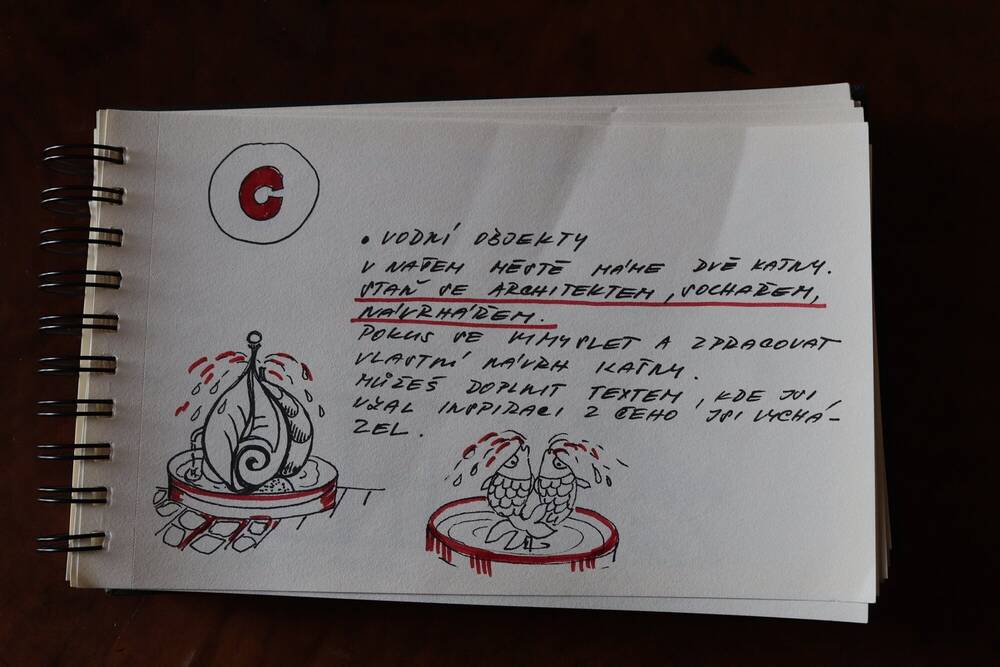 C
• VODNÍ OBJEKTY
V NAŠEM MĚSTĚ MÁME DVĚ KAŠNY.
STAŇ SE ARCHITEKTEM, SOCHAŘEM,
NÁVRHÁŘEM.
POKUS SE VYMYSLET A ZPRACOVAT
VLASTNÍ NÁVRH KAŠNY.
MŮŽEŠ DOPLNIT TEXTEM, KDE JSI
VZAL INSPIRACI Z ČEHO JSI VYCHÁ-
ZEL.